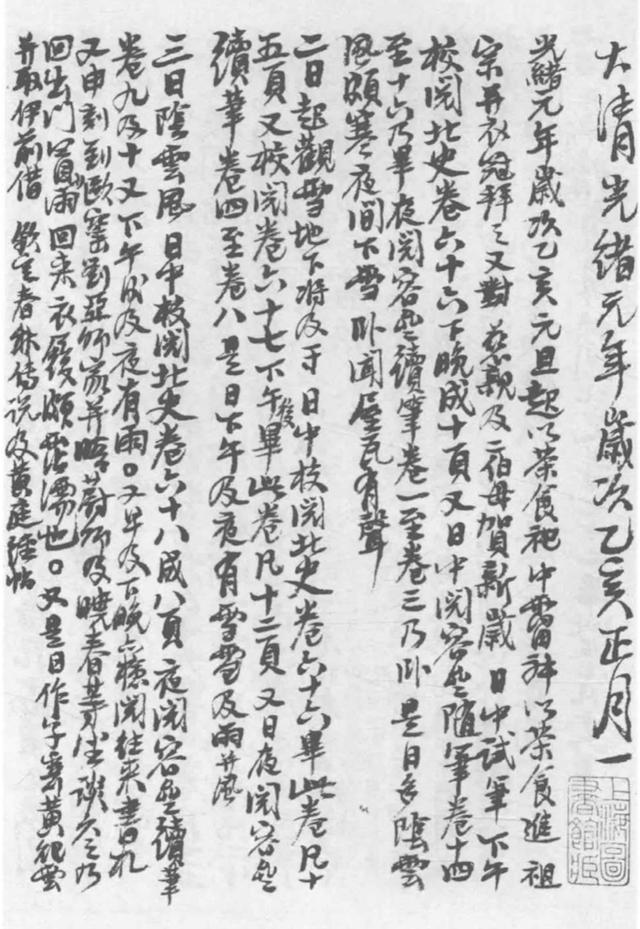 大清光緒元年歲次乙亥正月一
光緒元年歲次乙亥元旦起以茶食祀中霤神以茶食進 祖
宗并衣冠拜之又對 慈親及二伯母賀新歲 日中試筆下午
校閱北史卷六十六下晚成十頁又日中閱容齋隨筆卷十四
至十六乃畢夜閱容齋續筆卷一至卷三乃卧是日多陰雲
風頗寒夜間下雪卧聞屋瓦有聲
二日起觀雪地下將及寸日中校閱北史卷六十六畢此卷凡十
五頁又校閱卷六十七下午後畢此卷凡十二頁又日夜閱容齋
續筆卷四至卷八是日下午及夜有雪雪及雨并風
三日陰雲風日中校閱北史卷六十八成八頁夜閱容齋續筆
卷九及十又下午間及夜有雨。又早及下晚閱往來書札
又申刻到劉亞師家并晤蔚師及曉春等坐談久之乃
回出門冒雨回來衣履頗霑濡也。又是日作字寄黄妃雲
并取伊前借 欽定春秋傳說及黃庭經帖
上海圖
書館藏